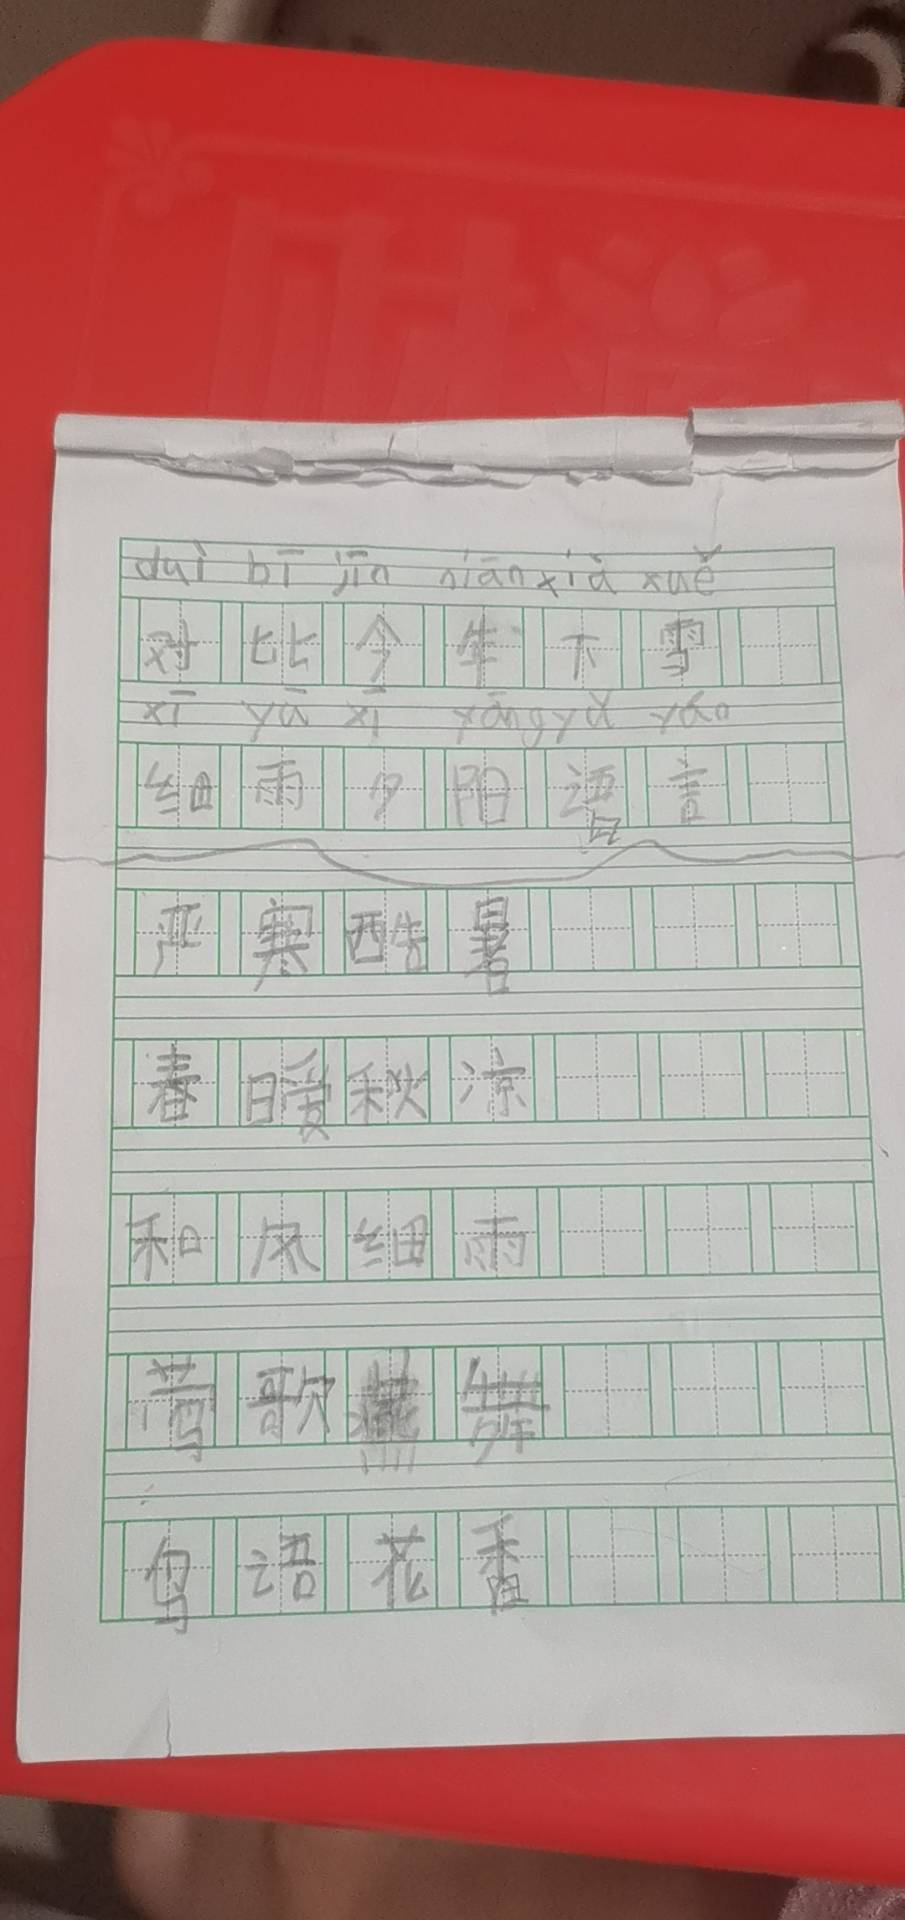 duì bī jīn niān xià xuě
对比今年下雪
xī yā xī yāng yǎ yán
细雨夕阳语言
严寒酷暑
春暖秋凉
和风细雨
莺歌燕舞
鸟语花香